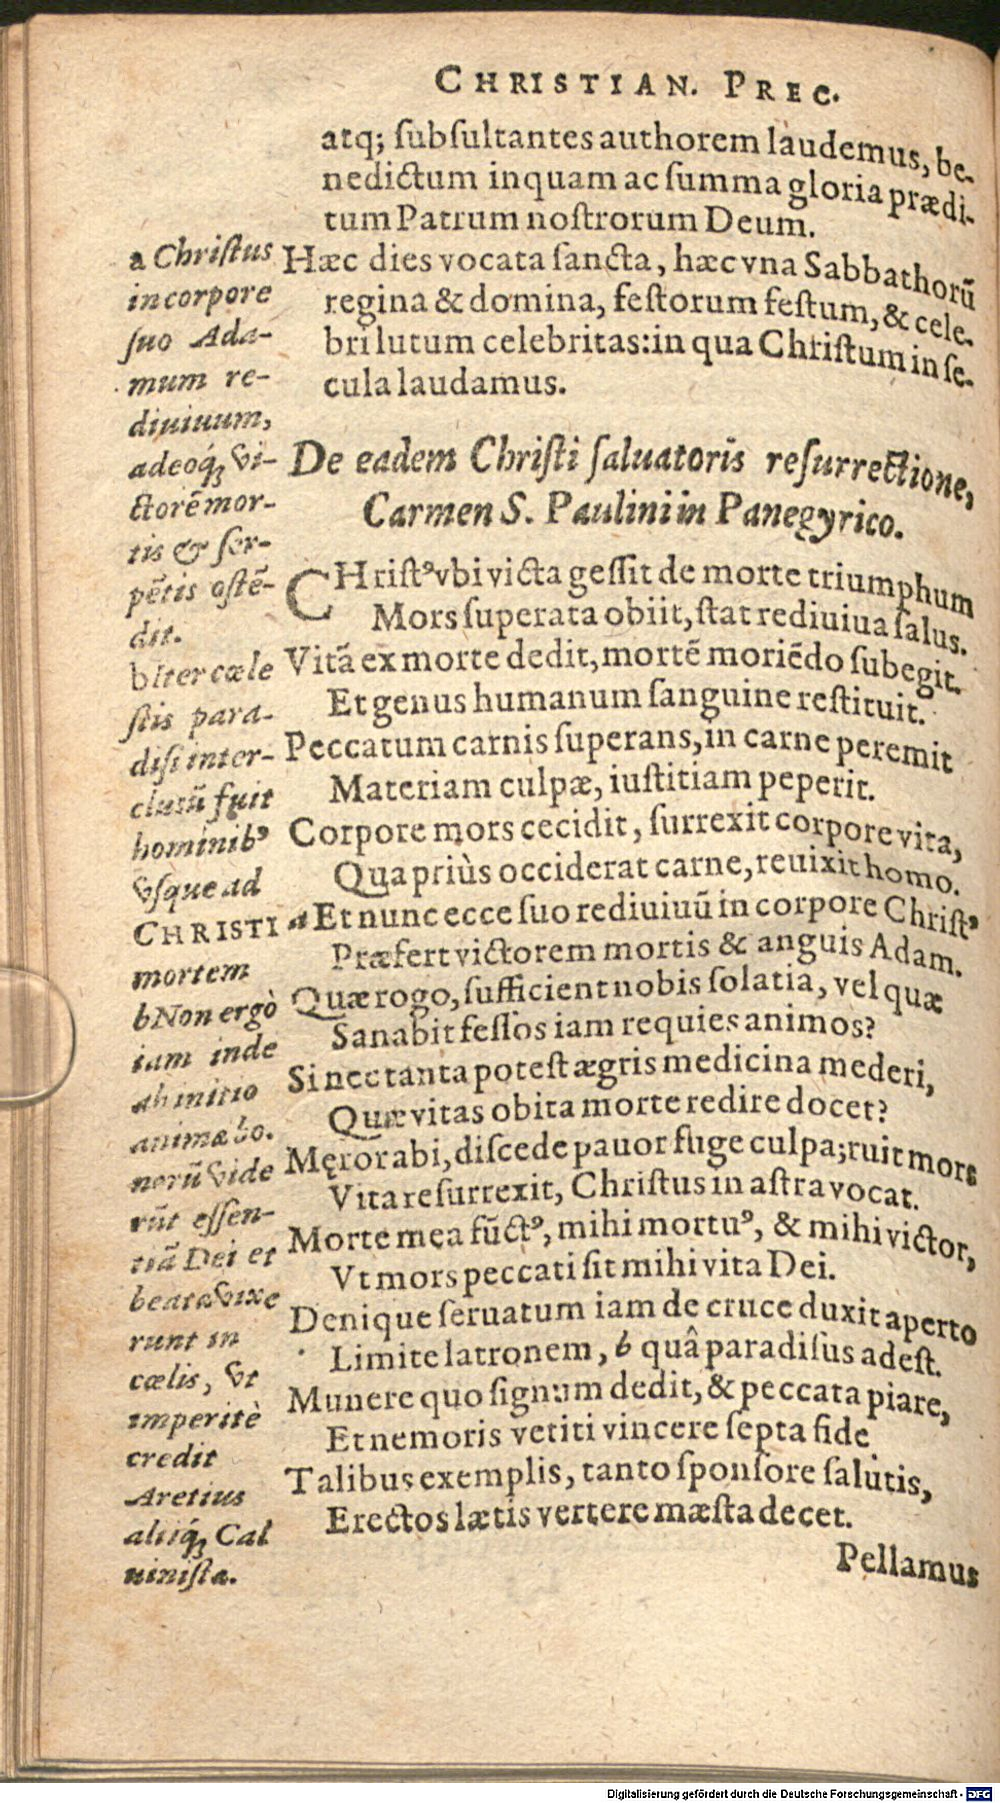 CHRISTIAN. PREC.
atq; ſubſultantes authorem laudemus, be-
nedictum inquam ac ſumma gloria prædi-
tum Patrum noſtrorum Deum.
Hæc dies vocata ſancta, hæc vna Sabbathorũ
regina & domina, feſtorum feſtum, & cele-
bri lutum celebritas: in qua Chriſtum in ſe-
cula laudamus.
De eadem Chriſti ſaluatoris reſurrectione,
Carmen S. Paulini in Panegyrico.
CHriſtꝰ vbi victa geſſit de morte triumphum
Mors ſuperata obiit, ſtat rediuiua ſalus.
Vitã ex morte dedit, mortẽ moriẽdo ſubegit.
Et genus humanum ſanguine reſtituit.
Peccatum carnis ſuperans, in carne peremit
Materiam culpæ, iuſtitiam peperit.
Corpore mors cecidit, ſurrexit corpore vita,
Qua priùs occiderat carne, reuixit homo.
a Et nunc ecce ſuo rediuiuũ in corpore Chriſtꝰ
Præfert victorem mortis & anguis Adam.
Quæ rogo, ſufficient nobis ſolatia, vel quæ
Sanabit feſſos iam requies animos?
Si nec tanta poteſt ægris medicina mederi,
Quæ vitas obita morte redire docet?
Męror abi, diſcede pauor fuge culpa; ruit mors
Vita reſurrexit, Chriſtus in aſtra vocat.
Morte mea fũctꝰ, mihi mortuꝰ, & mihi victor,
Vt mors peccati ſit mihi vita Dei.
Denique ſeruatum iam de cruce duxit aperto
Limite latronem, b quâ paradiſus adeſt.
Munere quo ſignum dedit, & peccata piare,
Et nemoris vetiti vincere ſepta fide
Talibus exemplis, tanto ſponſore ſalutis,
Erectos lætis vertere mæſta decet.
Pellamus
a Chriſtus
in corpore
ſuo Ada-
mum re-
diuiuum,
adeoq́; vi-
ctorẽ mor-
tis & ſer-
pẽtis oſtẽ-
dit.
b Iter cæle
ſtis para-
diſi inter-
cluſũ fuit
hominibꝰ
vſque ad
CHRISTI
mortem
b Non ergò
iam inde
ab initio
animæ bo.
norũ vide
rũt eſſen-
tiã Dei et
beatæ vixe
runt in
cœlis, vt
imperitè
credit
Aretius
aliiq́; Cal
uiniſta.
Digitalisierung gefördert durch die Deutsche Forschungsgemeinschaft - DFG